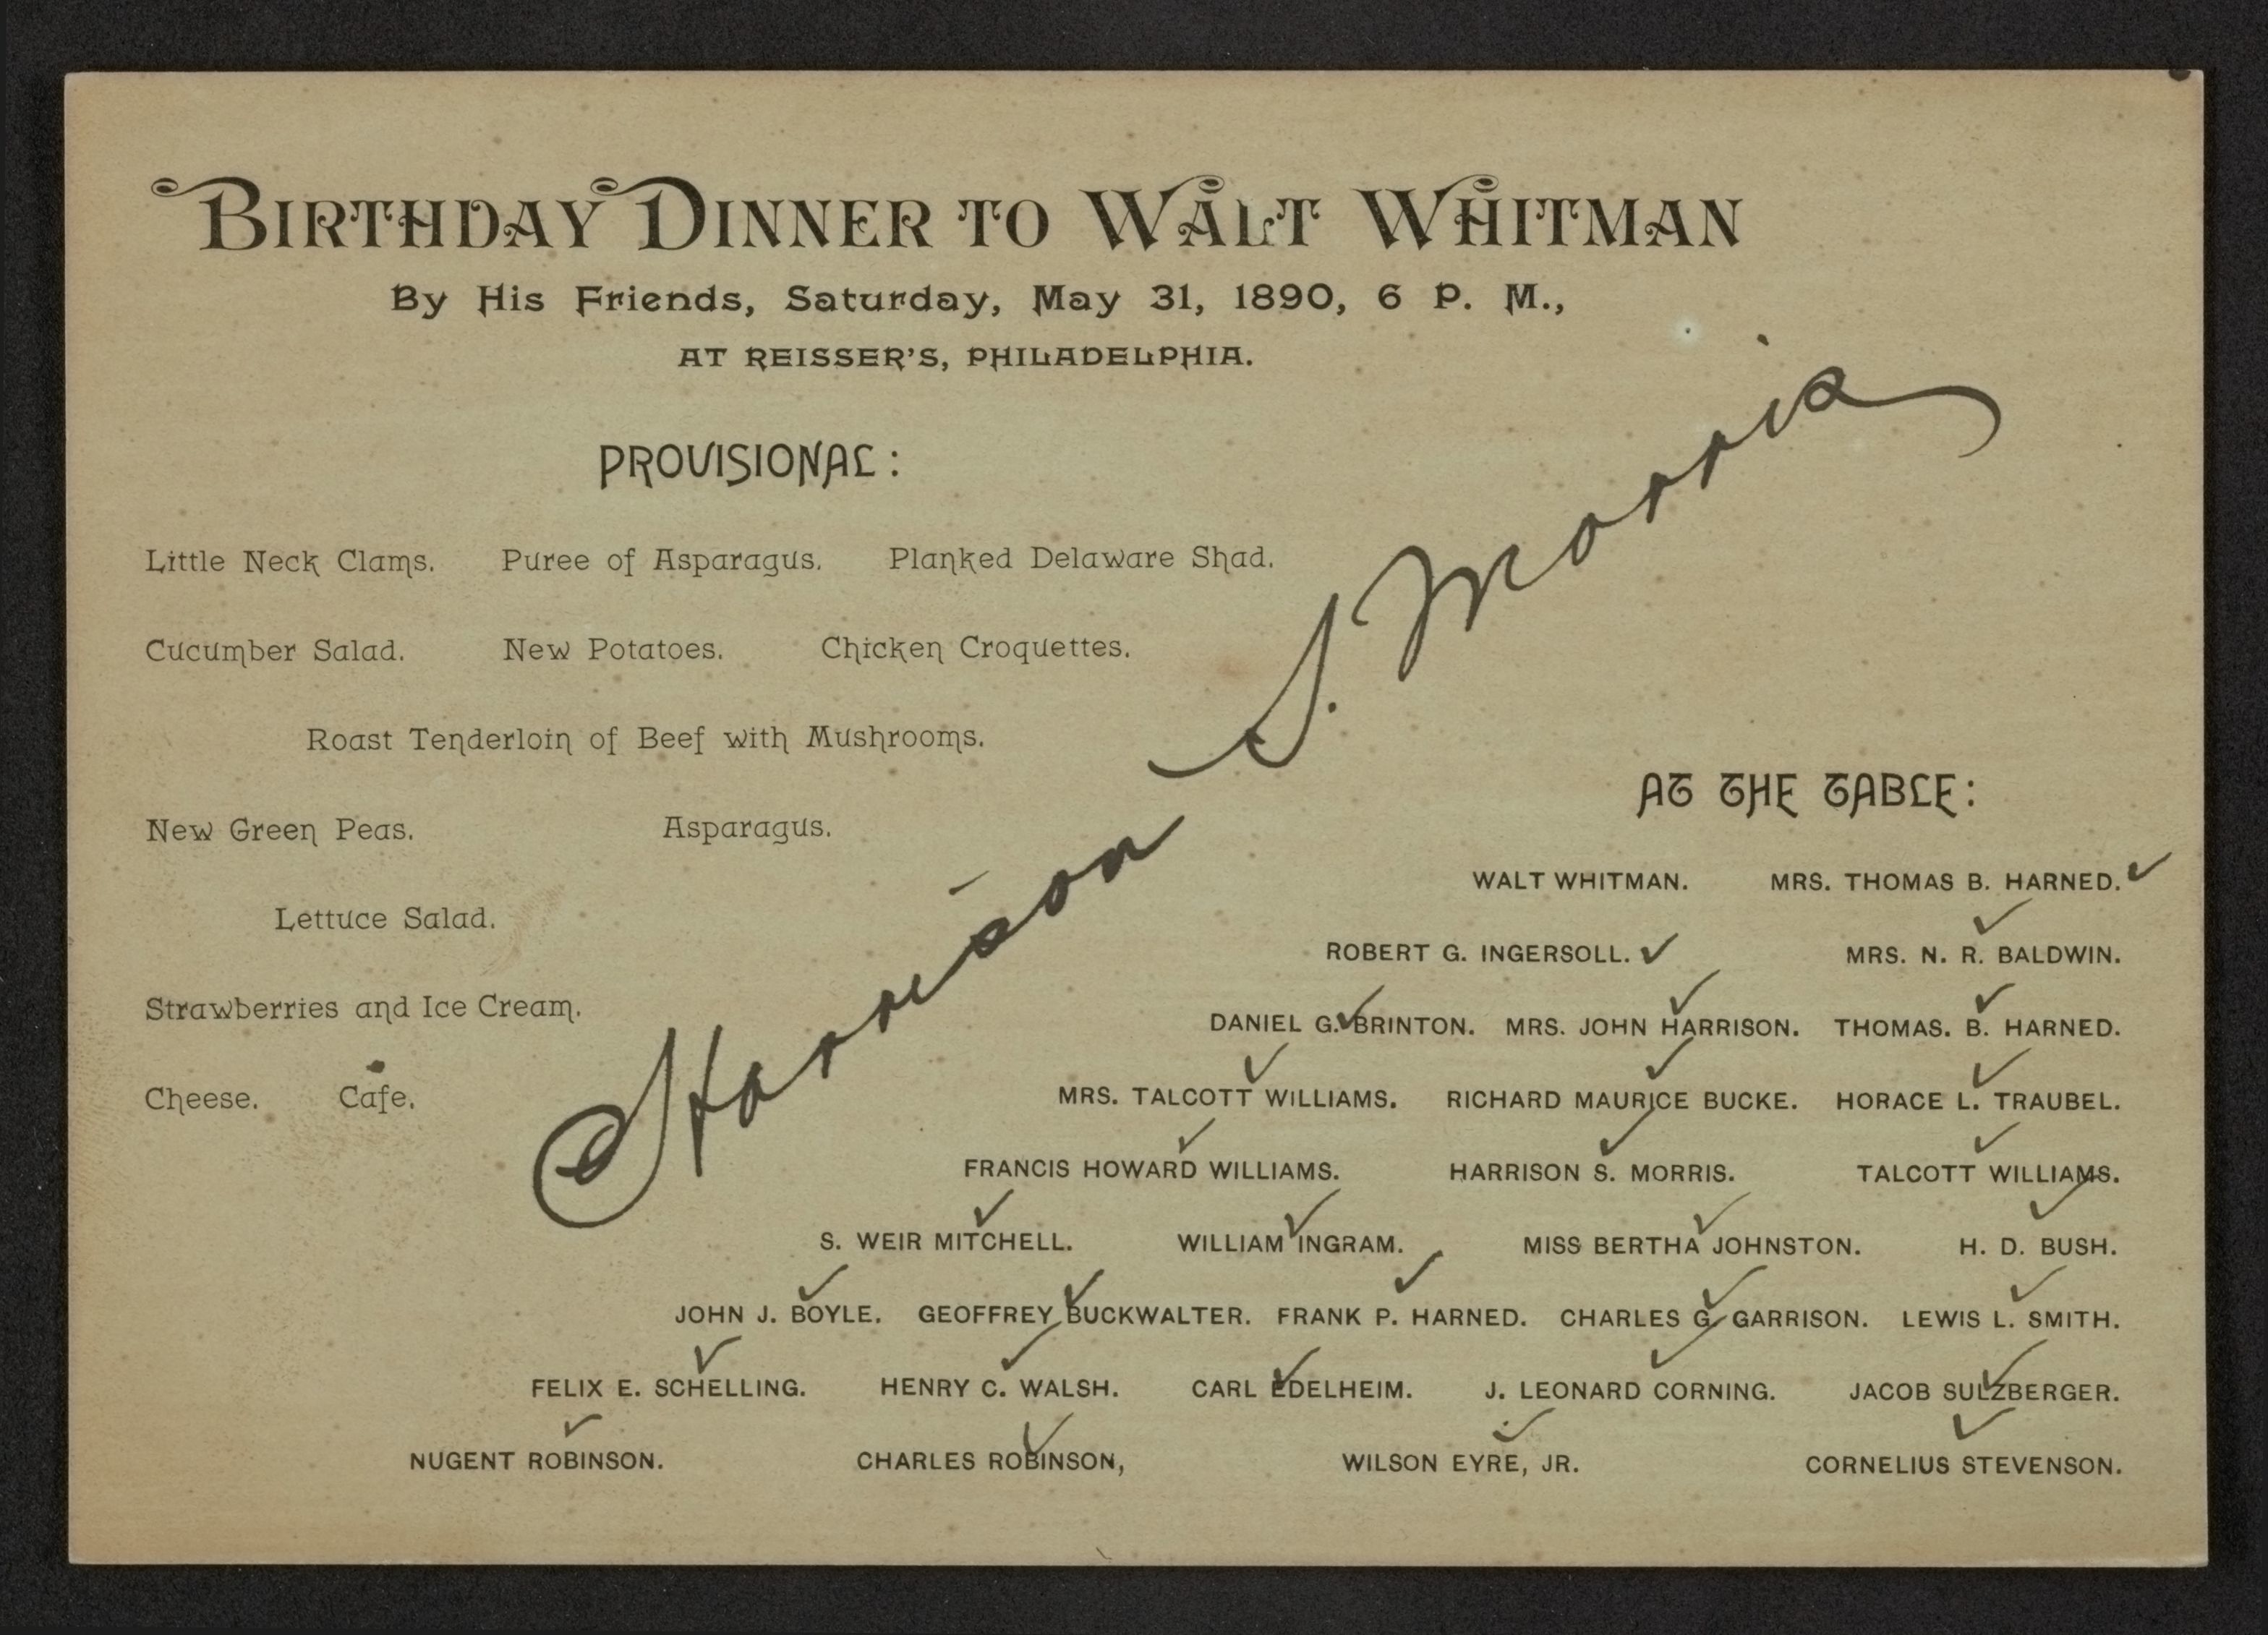 BIRTHDAY DINNER TO WALT WHITMAN
By His Friends, Saturday, May 31, 1890, 6 P. M.,
AT REISSER'S, PHILADELPHIA.
PROVISIONAL:
Little Neck Clams. Puree of Asparagus. Planked Delaware Shad.
Cucumber Salad. New Potatoes. Chicken Croquettes.
Roast Tenderloin of Beef with Mushrooms.
New Green Peas. Asparagus.
Lettuce Salad.
Strawberries and Ice Cream.
Cheese. Cafe.
Harrison S. Morris
AT THE TABLE:
WALT WHITMAN. MRS. THOMAS B. HARNED. ✓
ROBERT G. INGERSOLL. ✓ MRS. N. R. BALDWIN. ✓
DANIEL G. ✓ BRINTON. MRS. JOHN HARRISON. ✓ THOMAS. B. HARNED. ✓
MRS. TALCOTT WILLIAMS. ✓ RICHARD MAURICE BUCKE. ✓ HORACE L. TRAUBEL. ✓
FRANCIS HOWARD WILLIAMS. ✓ HARRISON S. MORRIS. ✓ TALCOTT WILLIAMS. ✓
S. WEIR MITCHELL. ✓ WILLIAM INGRAM. ✓ MISS BERTHA JOHNSTON. ✓ H. D. BUSH. ✓
JOHN J. BOYLE. ✓ GEOFFREY BUCKWALTER. ✓ FRANK P. HARNED. ✓ CHARLES G. GARRISON. ✓ LEWIS L. SMITH. ✓
FELIX E. SCHELLING. ✓ HENRY C. WALSH. ✓ CARL EDELHEIM. ✓ J. LEONARD CORNING. ✓ JACOB SULZBERGER. ✓
NUGENT ROBINSON. ✓ CHARLES ROBINSON, ✓ WILSON EYRE, JR. ✓ CORNELIUS STEVENSON. ✓